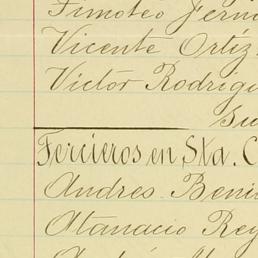 Timoteo Fern
Vicente Ortiz
Victor Rodrigu
Su
Tercieros en Sta. C
Andres Beni
Atanacio Rey